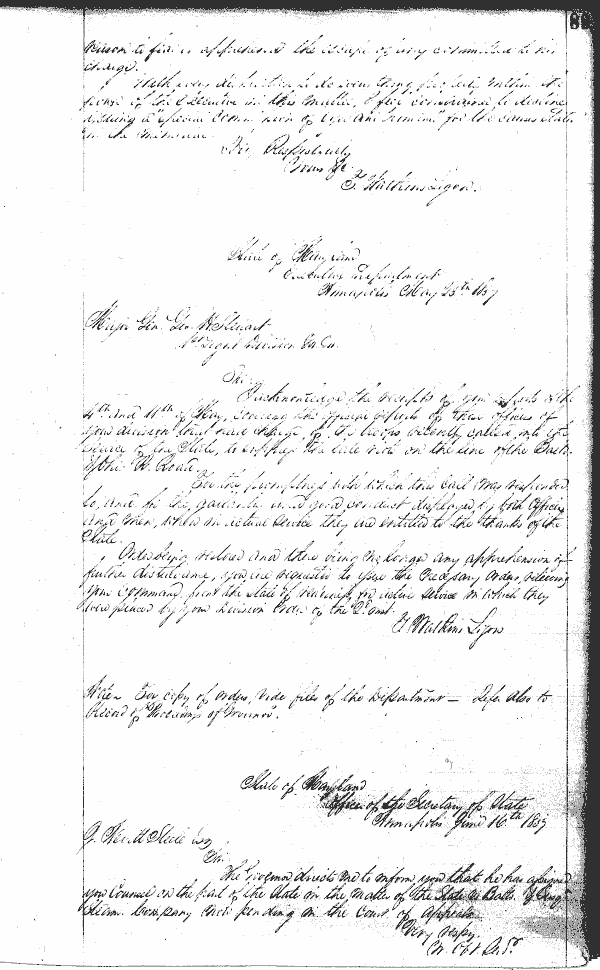 the escape of any committed to his
charge.
With every disposition to do every thing properly within the
power of the Executive in this matter, I feel constrained to decline
issuing a special commission of for the
in the
Very Respectfully
Yours &c
T. Watkins Ligon.
State of Maryland
Executive Department
Annapolis May 23th 1857
Major Gen. Geo. H Steuart
1st Light Division
Sir
I acknowledge the receipts of your of the
4th and 11th of May, covering the official reports of the officers of
your division that had charge of the troops recently called into the
service of the State, to suppress the late riot on the line of the Balt.
& Ohio R. Road.
For the promptness with which this call was responded
to, and for the gallantry and good conduct displayed by both officers
and men, while in actual service they are entitled to the thanks of the
State.
Order being restored and there being no longer any apprehension of
further disturbance, you are requested to issue the necessary orders, relieving
your command from the state of readiness for active service in which they
were placed by your Division Order of the 2d
T Watkins Ligon
For copy of orders, vide files of the Department — Refer also to
Record of Proceedings of Governor.
State of Maryland
Office of the Secretary of State
Annapolis June 16th 1857
J. Nevitt Steele Esq
Sir.
The Governor directs me to inform you that he has assigned
you Counsel on the part of the State in the matter of the State vs Balto. &
Steam Company now pending in the Court of Appeals.
Very respy.